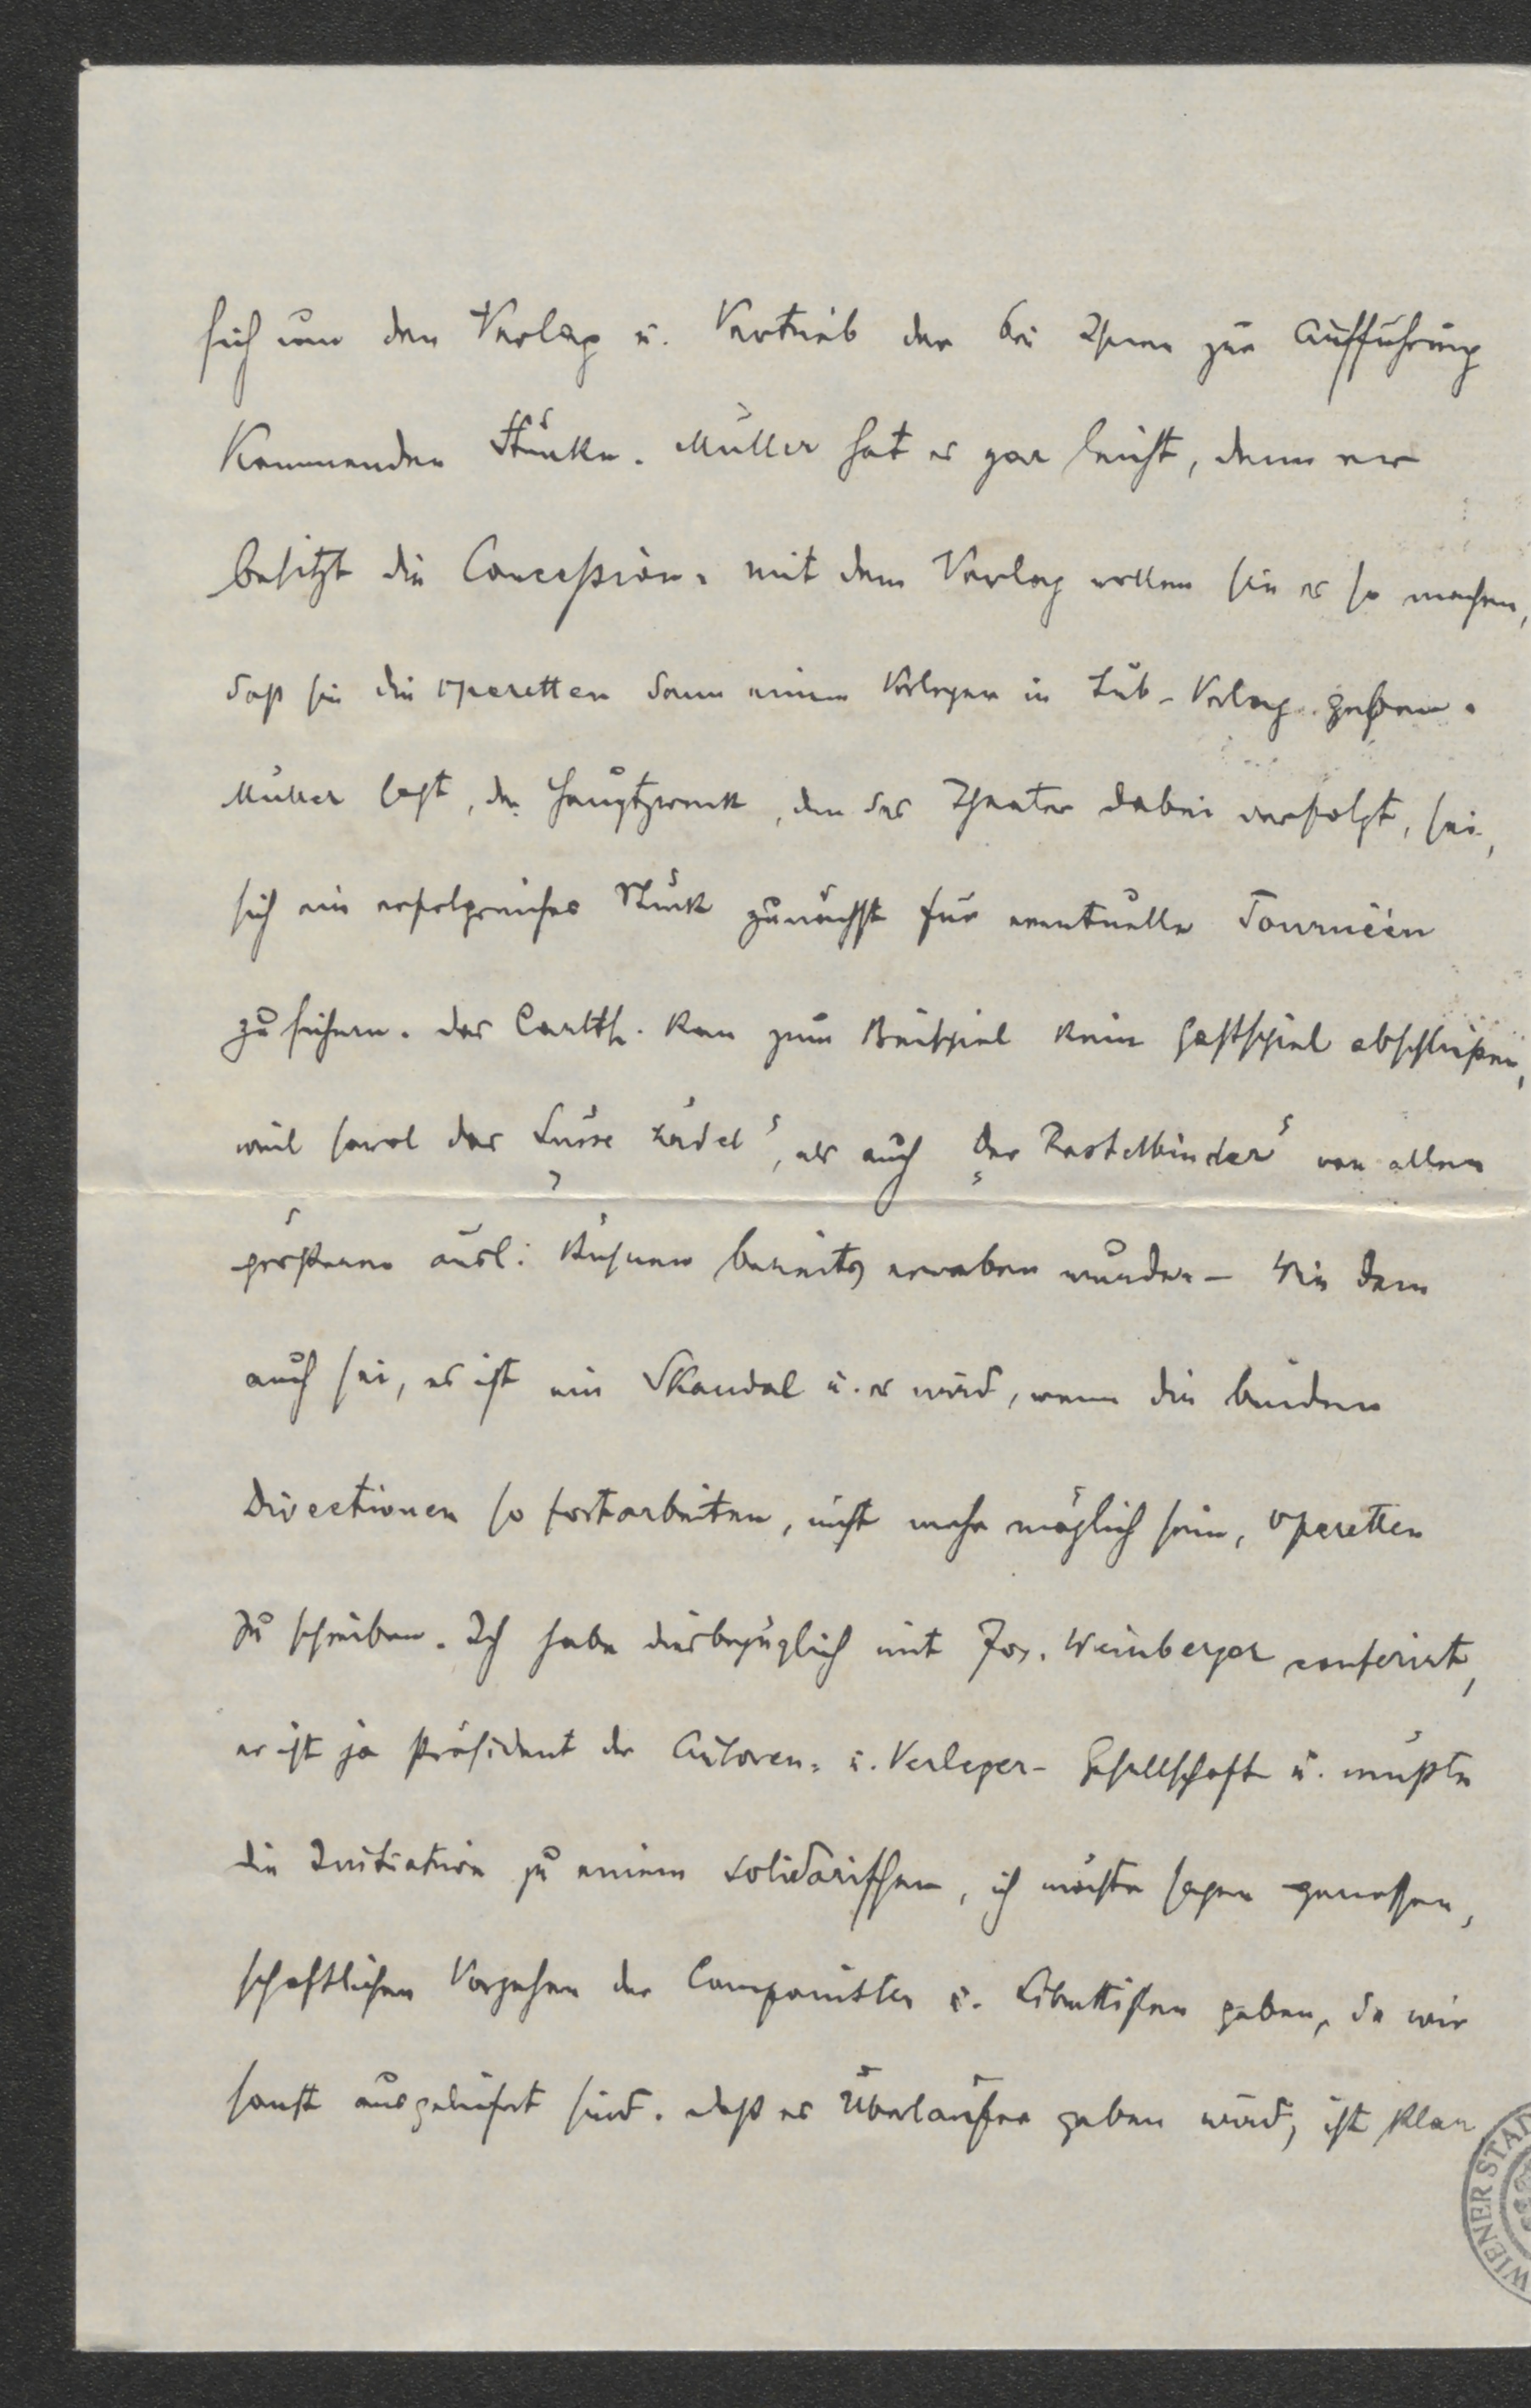 sich um den Verlag u. Vertrieb der bei Ihnen zur Aufführung
kommenden Stücke. Müller hat es gar leicht, denn er
besitzt die Concession. mit dem Verlag wollen sie es so machen,
daß sie die Operetten dann einem Verleger in Sub-Verlag geben.
Müller sagt, der Hauptzweck, den das Theater dabei verfolgt, sei,
sich ein erfolgreiches Stück zunächst für eventuelle Tournéen
zu sichern. das Carlth. kan zum Beispiel kein Gastspiel abschließen,
weil sowol das „Süsse Mädel“, als auch „Der Rastelbinder“ von allen
größeren ausl: Bühnen bereits erworben wurden – Wie dem
auch sei, es ist ein Skandal u. es wird, wenn die beiden
Directionen so fortarbeiten, nicht mehr möglich sein, Operetten
zu schreiben. Ich habe diesbezüglich mit Jos. Weinberger conferirt,
er ist ja Präsident der Autoren- u. Verleger-Gesellschaft u. müßte
die Initiative zu einem solidarischen, ich möchte sagen genossen-
schaftlichen Vorgehen der Componisten u. Librettisten geben, da wir
sonst ausgeliefert sind. daß es Überläufer geben wird, ist klar
WIENER STAD